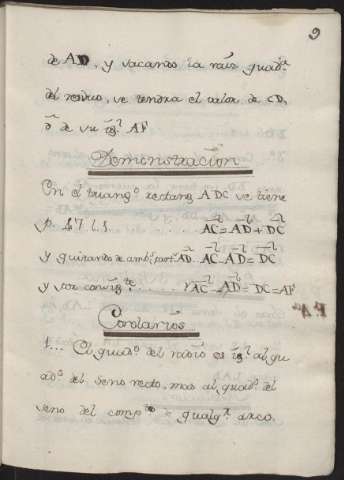 9
de AD, y sacando la raiz quad.ª
del residuo, se tendra el valor de CD,
ō de su ig.l AF
Demonstracion
En el triang.o rectang. ADC se tiene
p. 47 1.1 AC² = AD² + DC²
y quitando de amb.s part.s AD². AC² - AD² = DC²
y por consig.te √AC² - AD² = DC = AF
Corolarios
1... El quad.o del radio es ig.l al qu
ad.o del seno recto, mas al quad.o del
seno del comp.to de qualq.r arco.